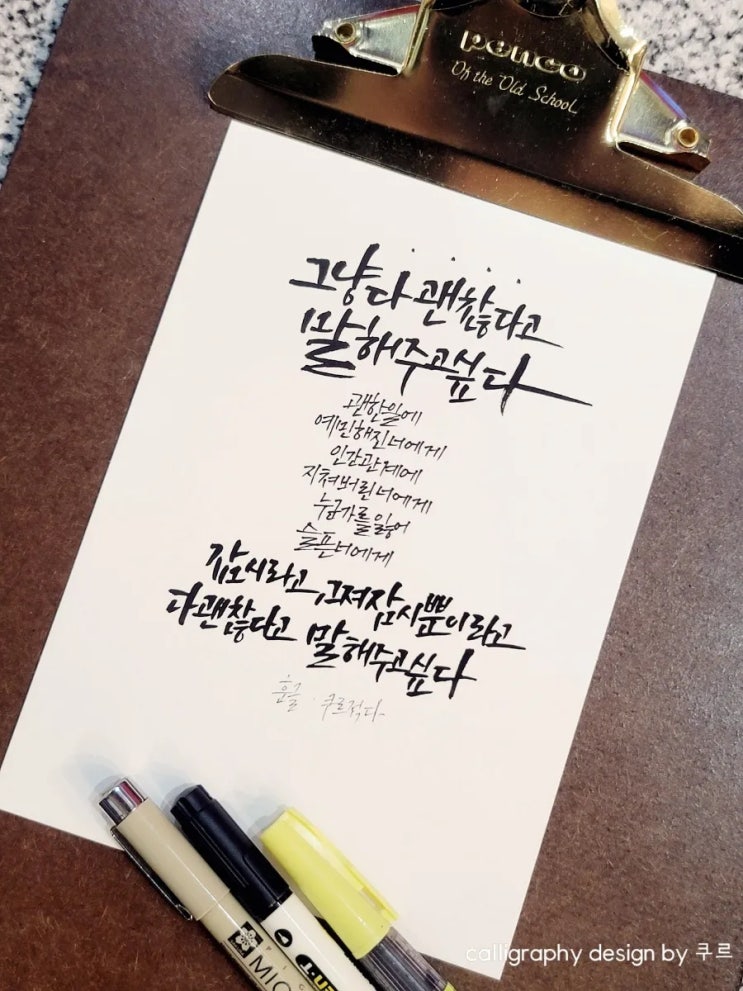 penco
Of the Old School
그냥 다 괜찮다고
말해주고 싶다
괜한 일에
예민해진 너에게
인간관계에
지쳐버린 너에게
누군가를 잃어
슬픈 너에게
잠시라고, 그저 잠시뿐이라고
다 괜찮다고 말해주고 싶다
흔글 · 쿠르적다
MIC
calligraphy design by 쿠르